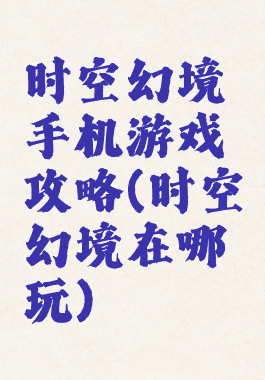 时空幻境
手机游戏
攻略(时空
幻境在哪
玩)